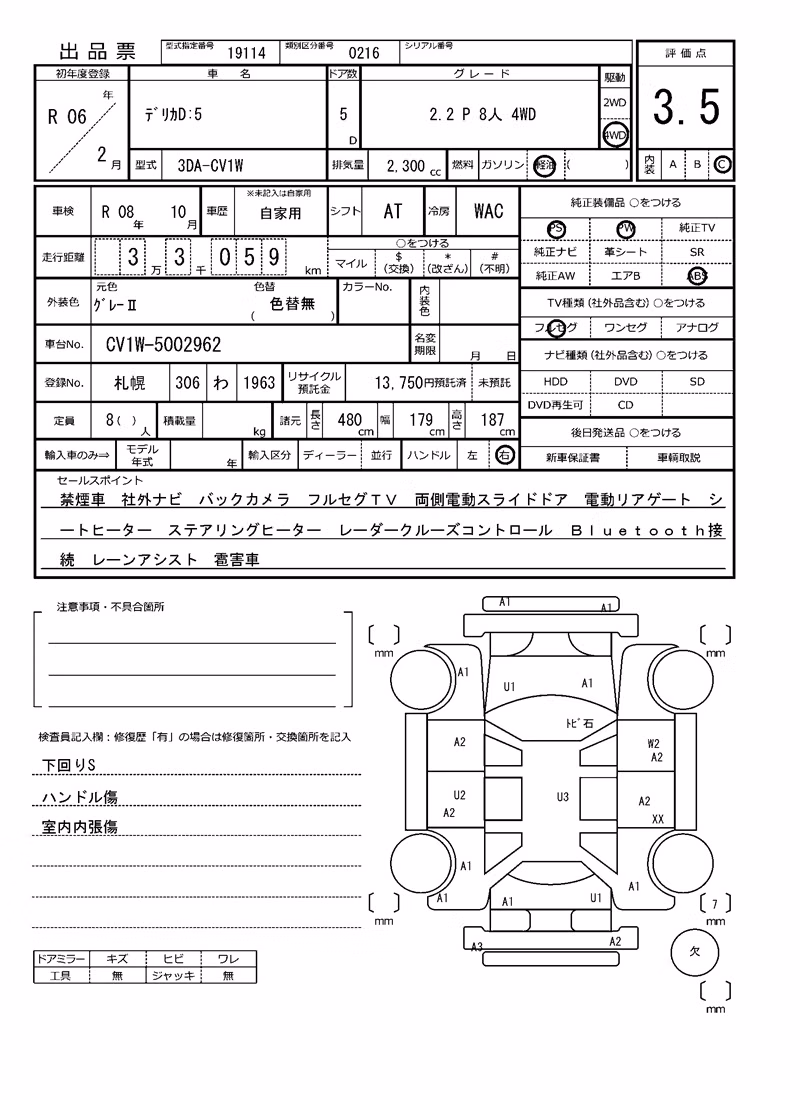 出品票 型式指定番号 19114 類別区分番号 0216 シリアル番号
評価点
3.5
内装 A B C
初年度登録 車名 ドア数 グレード 駆動
R 06 年 2 月
ﾃﾞﾘｶD:5
5 D
2.2 P 8人 4WD
2WD
4WD
型式 3DA-CV1W 排気量 2,300 cc 燃料 ガソリン 軽油 ( )
車検 R 08 年 10 月 車歴 ※未記入は自家用 自家用 シフト AT 冷房 WAC
走行距離 3 万 3 千 0 5 9 km
○をつける
マイル $(交換) *(改ざん) #(不明)
外装色 元色 ｸﾞﾚｰⅡ 色替 ( 色替無 ) カラーNo. 内装色
車台No. CV1W-5002962 名変期限 月 日
登録No. 札幌 306 わ 1963 リサイクル預託金 13,750円預託済 未預託
定員 8( ) 人 積載量 kg 諸元 長さ 480 cm 幅 179 cm 高さ 187 cm
輸入車のみ⇒ モデル年式 年 輸入区分 ディーラー 並行 ハンドル 左 右
純正装備品 ○をつける
PS PW 純正TV
純正ナビ 革シート SR
純正AW エアB ABS
TV種類(社外品含む)○をつける
フルセグ ワンセグ アナログ
ナビ種類(社外品含む)○をつける
HDD DVD SD
DVD再生可 CD
後日発送品 ○をつける
新車保証書 車輌取説
セールスポイント
禁煙車 社外ナビ バックカメラ フルセグＴＶ 両側電動スライドドア 電動リアゲート シ
ートヒーター ステアリングヒーター レーダークルーズコントロール Ｂｌｕｅｔｏｏｔｈ接
続 レーンアシスト 雹害車
注意事項・不具合箇所
検査員記入欄：修復歴「有」の場合は修復箇所・交換箇所を記入
下回りS
ハンドル傷
室内内張傷
ドアミラー キズ ヒビ ワレ
工具 無 ジャッキ 無
A1 A1
mm mm
A1 U1 A1
ﾄﾋﾞ石
A2 W2
A2
U2 U3 A2
A2 XX
A1 A1
A1 A1 U1
7
mm mm
A3 A2
欠
mm